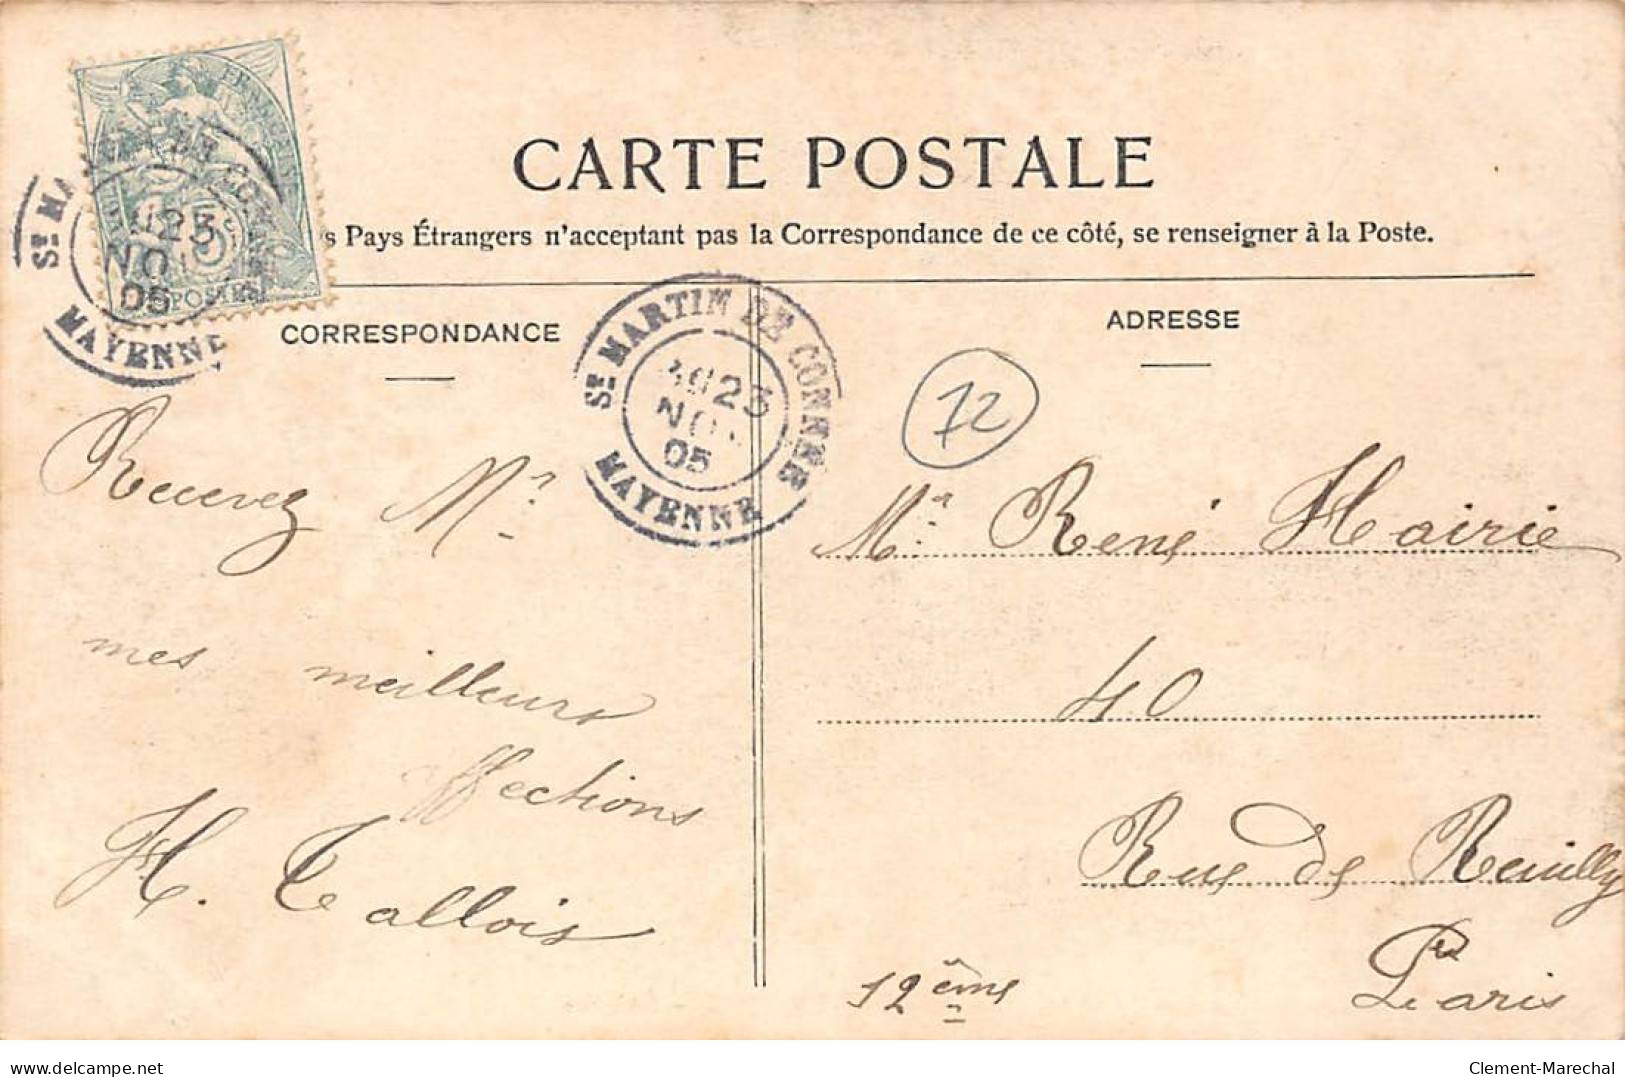 CARTE POSTALE
s Pays Étrangers n'acceptant pas la Correspondance de ce côté, se renseigner à la Poste.
CORRESPONDANCE
ADRESSE
St MARTIN DE CONNÉE
23
NO
05
MAYENNE
St MARTIN DE CONNÉE
23
NO
05
MAYENNE
POSTES
72
Recevez Mr
mes meilleurs
affections
H. Tallois
Mr René Hairie
40
Rue de Reuilly
Paris
12ème
delcampe.net
Clement-Marechal